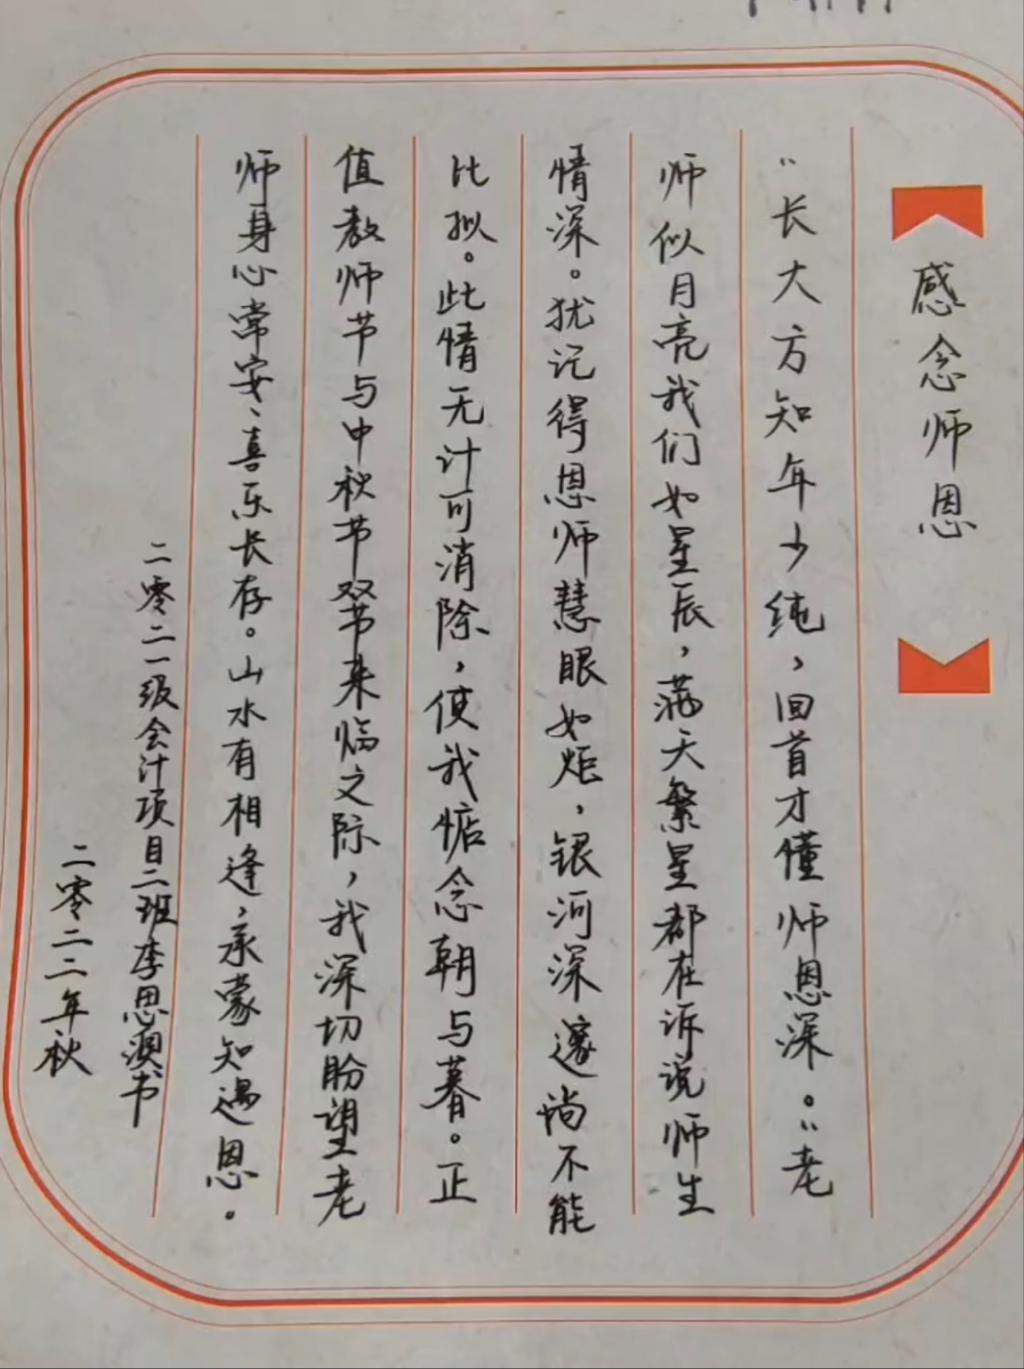 感念师恩
“长大方知年少纯，回首才懂师恩深。”老
师似月亮我们如星辰，满天繁星都在诉说师生
情深。犹记得恩师慧眼如炬，银河深邃尚不能
比拟。此情无计可消除，使我惦念朝与暮。正
值教师节与中秋节双节来临之际，我深切盼望老
师身心常安、喜乐长存。山水有相逢，承蒙知遇恩。
二零二一级会计项目二班李思澳书
二零二二年秋